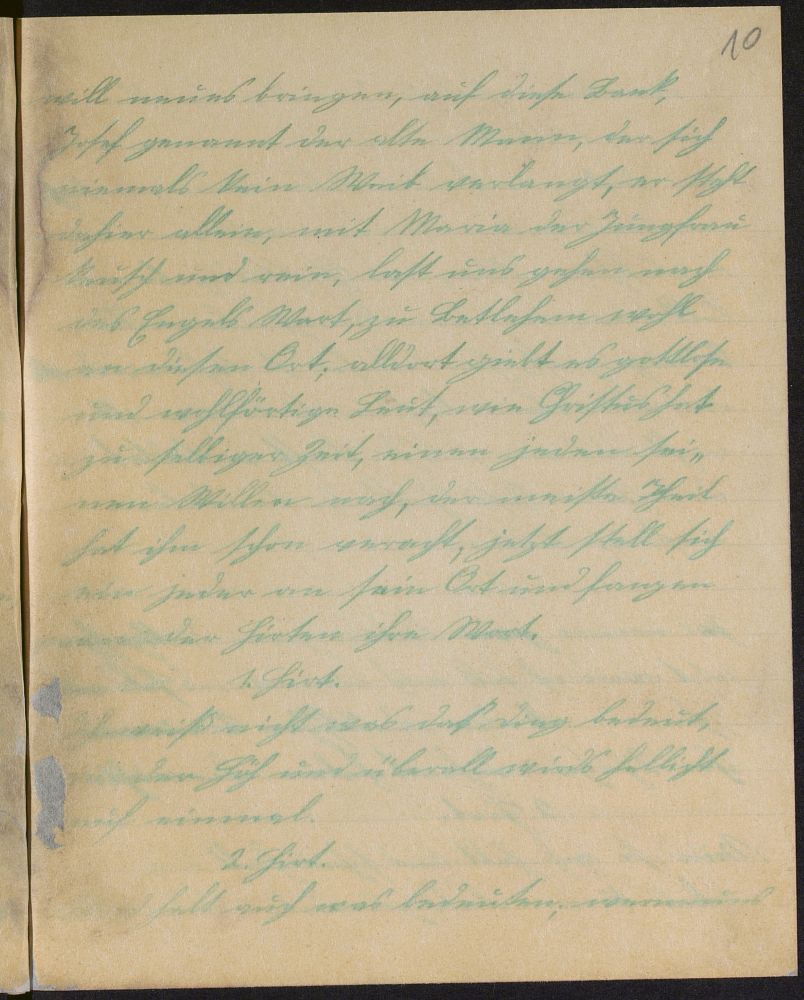 10
will neues bringen, auf diese Bank,
Josef genannt der alte Mann, der sich
niemals kein Weib verlangt, er steht
dahier allein, mit Maria der Jungfrau
keusch und rein, last uns gehen nach
des Engels Wort, zu Betlehem wohl
an diesen Ort, alldort giebt es gottlose
und Leut, wie Christus hat
zu selbiger Zeit, einen jeden sei„
nen Willen nach, der meiste Theil
hat ihm schon veracht, jetzt stell sich
ein jeder an sein Ort und fangen
an der Hirten ihre Wort.
1. Hirt.
weiß nicht was daß Ding bedeut,
in der Höh und überall wirds hellicht
auf einmal.
2. Hirt.
halt auch was bedeuten,